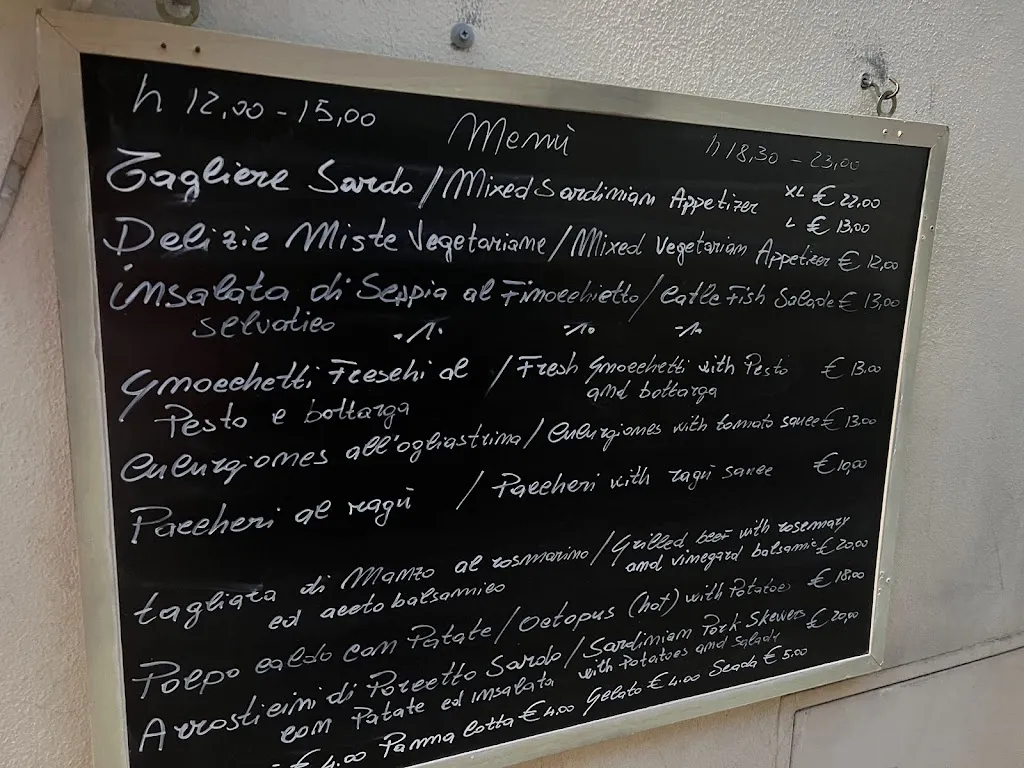 h 12,00 - 15,00 Menù h 18,30 - 23,00
Tagliere Sardo / Mixed Sardinian Appetizer XL € 22,00
L € 13,00
Delizie Miste Vegetariane / Mixed Vegetarian Appetizer € 12,00
insalata di Seppia al Finocchietto / Catle Fish Salade € 13,00
selvatico
Gnocchetti Freschi al / Fresh Gnocchetti with Pesto € 13.00
Pesto e bottarga and bottarga
Culurgiones all'ogliastrina / Culurgiones with tomato sauce € 13.00
Paccheri al ragù / Paccheri with ragù sauce € 10,00
tagliata di Manzo al rosmarino / Grilled beef with rosemary
ed aceto balsamico and vinegard balsamic € 20,00
Polpo caldo con Patate / Octopus (hot) with Potatoes € 18,00
Arrosticini di Porcetto Sardo / Sardinian Pork Skewers € 20,00
con Patate ed insalata with Potatoes and Salade
€ 4.00 Panna Cotta € 4.00 Gelato € 4.00 Seada € 5.00